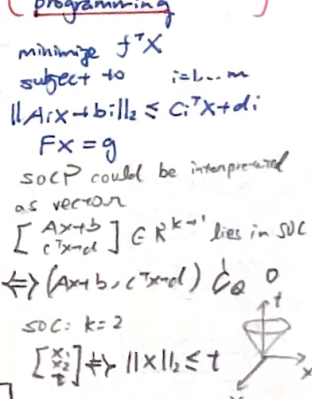 programming
minimize fᵀX
subject to i=1...m
||Aix+bi||₂ ≤ Ciᵀx+di
Fx = g
SOCP could be interpreted
as vector
[Ax+b cᵀx+d] ∈ Rᵏ⁺¹ lies in SOC
⇔ (Ax+b, cᵀx+d) 0
SOC: k=2
[x₁ x₂ t] ⇔ ||x||₂ ≤ t
t
x